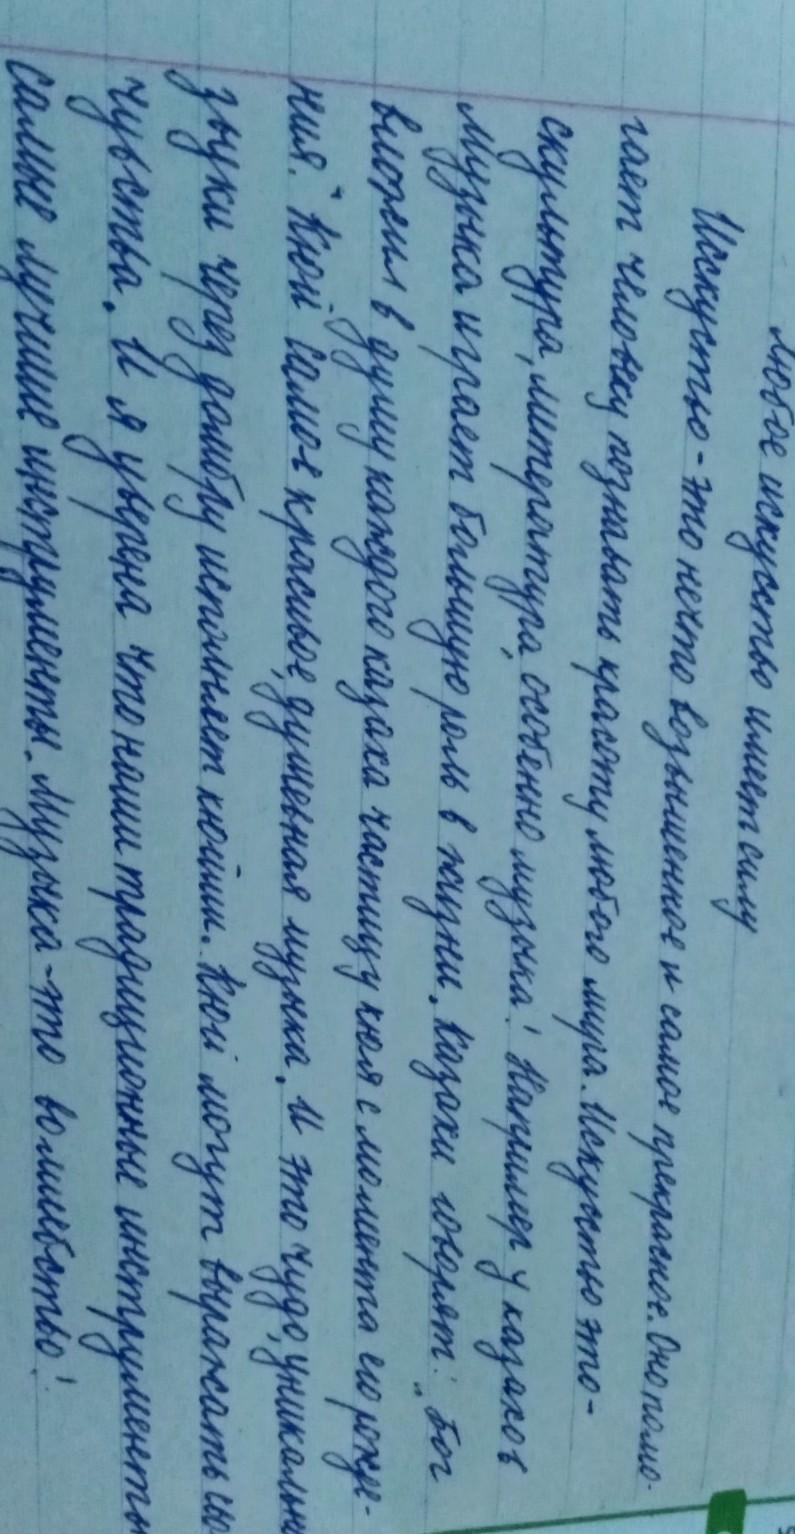 Любое искусство имеет силу
Исскуство - это нечто возвышенное и самое прекрасное. Оно помо-
гает человеку познавать красоту любого мира. Искуство это -
скульптура, литература, особенно музыка! Например у казахов
музыка играет большую роль в жизни. Казахи говорят: „Бог
вложил в душу каждого казаха частицу кюя с момента его рожде-
ния." Кюй самое красивое, душевная музыка. И это чудо, уникальн
звуки через домбру исполняет кюйши. Кюй могут выражать
чувства. И я уверена что наши традиционные инструменты
самые лучшие инструменты. Музыка - это волшебство!